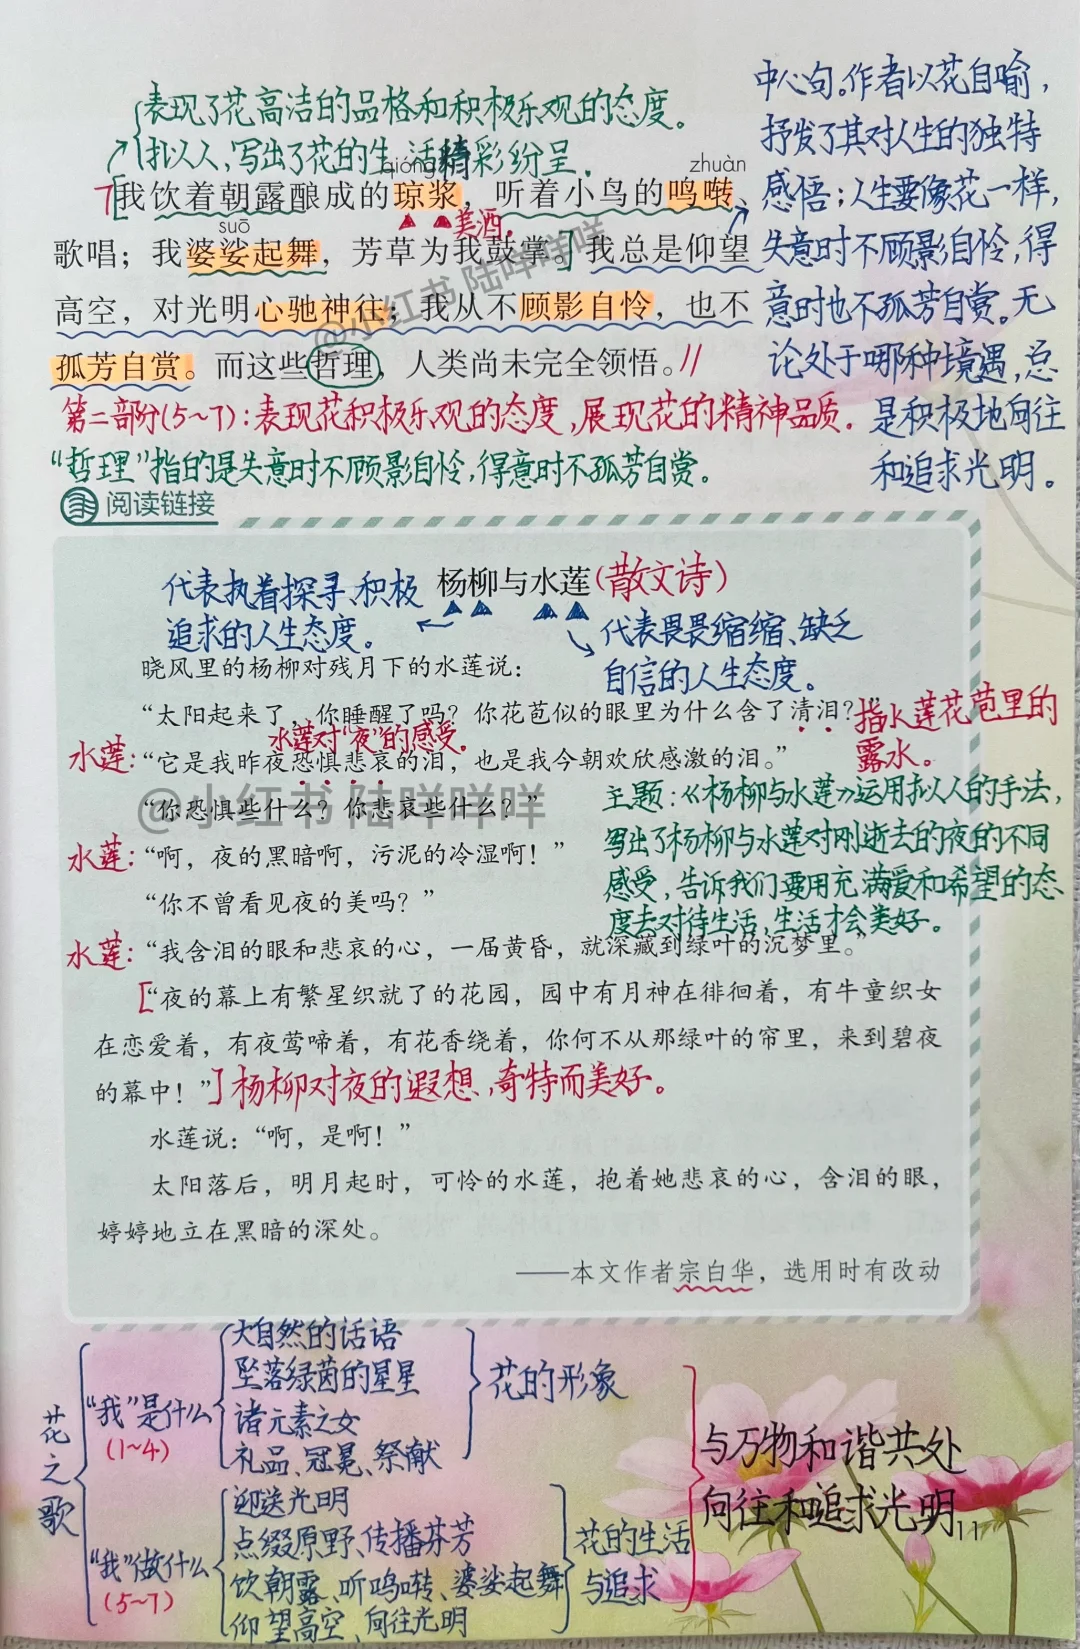 表现了花高洁的品格和积极乐观的态度。
拟人,写出了花的生活精彩纷呈。
qióng
zhuàn
7我饮着朝露酿成的琼浆，听着小鸟的鸣啭、
suō
美酒。
歌唱；我婆娑起舞，芳草为我鼓掌。我总是仰望
高空，对光明心驰神往；我从不顾影自怜，也不
孤芳自赏。而这些哲理，人类尚未完全领悟。//
中心句。作者以花自喻,
抒发了其对人生的独特
感悟；人生要像花一样,
失意时不顾影自怜,得
意时也不孤芳自赏。无
论处于哪种境遇,总
是积极地向往
和追求光明。
第二部分(5~7):表现花积极乐观的态度,展现花的精神品质。
“哲理”指的是失意时不顾影自怜,得意时不孤芳自赏。
阅读链接
杨柳与水莲(散文诗)
代表执着探寻、积极
追求的人生态度。
代表畏畏缩缩、缺乏
自信的人生态度。
晓风里的杨柳对残月下的水莲说：
“太阳起来了，你睡醒了吗？你花苞似的眼里为什么含了清泪？”
指水莲花苞里的
露水。
水莲对“夜”的感受。
水莲:“它是我昨夜恐惧悲哀的泪，也是我今朝欢欣感激的泪。”
“你恐惧些什么？你悲哀些什么？”
水莲:“啊，夜的黑暗啊，污泥的冷湿啊！”
“你不曾看见夜的美吗？”
主题:《杨柳与水莲》运用拟人的手法,
写出了杨柳与水莲对刚逝去的夜的不同
感受,告诉我们要用充满爱和希望的态
度去对待生活,生活才会美好。
水莲:“我含泪的眼和悲哀的心，一届黄昏，就深藏到绿叶的沉梦里。”
[“夜的幕上有繁星织就了的花园，园中有月神在徘徊着，有牛童织女
在恋爱着，有夜莺啼着，有花香绕着，你何不从那绿叶的帘里，来到碧夜
的幕中！”]杨柳对夜的遐想,奇特而美好。
水莲说：“啊，是啊！”
太阳落后，明月起时，可怜的水莲，抱着她悲哀的心，含泪的眼，
婷婷地立在黑暗的深处。
——本文作者宗白华，选用时有改动
花之歌
“我”是什么
(1~4)
大自然的话语
坠落绿茵的星星
诸元素之女
礼品、冠冕、祭献
花的形象
“我”做什么
(5~7)
迎送光明
点缀原野、传播芬芳
饮朝露、听鸣啭、婆娑起舞
仰望高空、向往光明
花的生活
与追求
与万物和谐共处
向往和追求光明
11
@小红书 陆咩咩咩
@小红书 陆咩咩咩